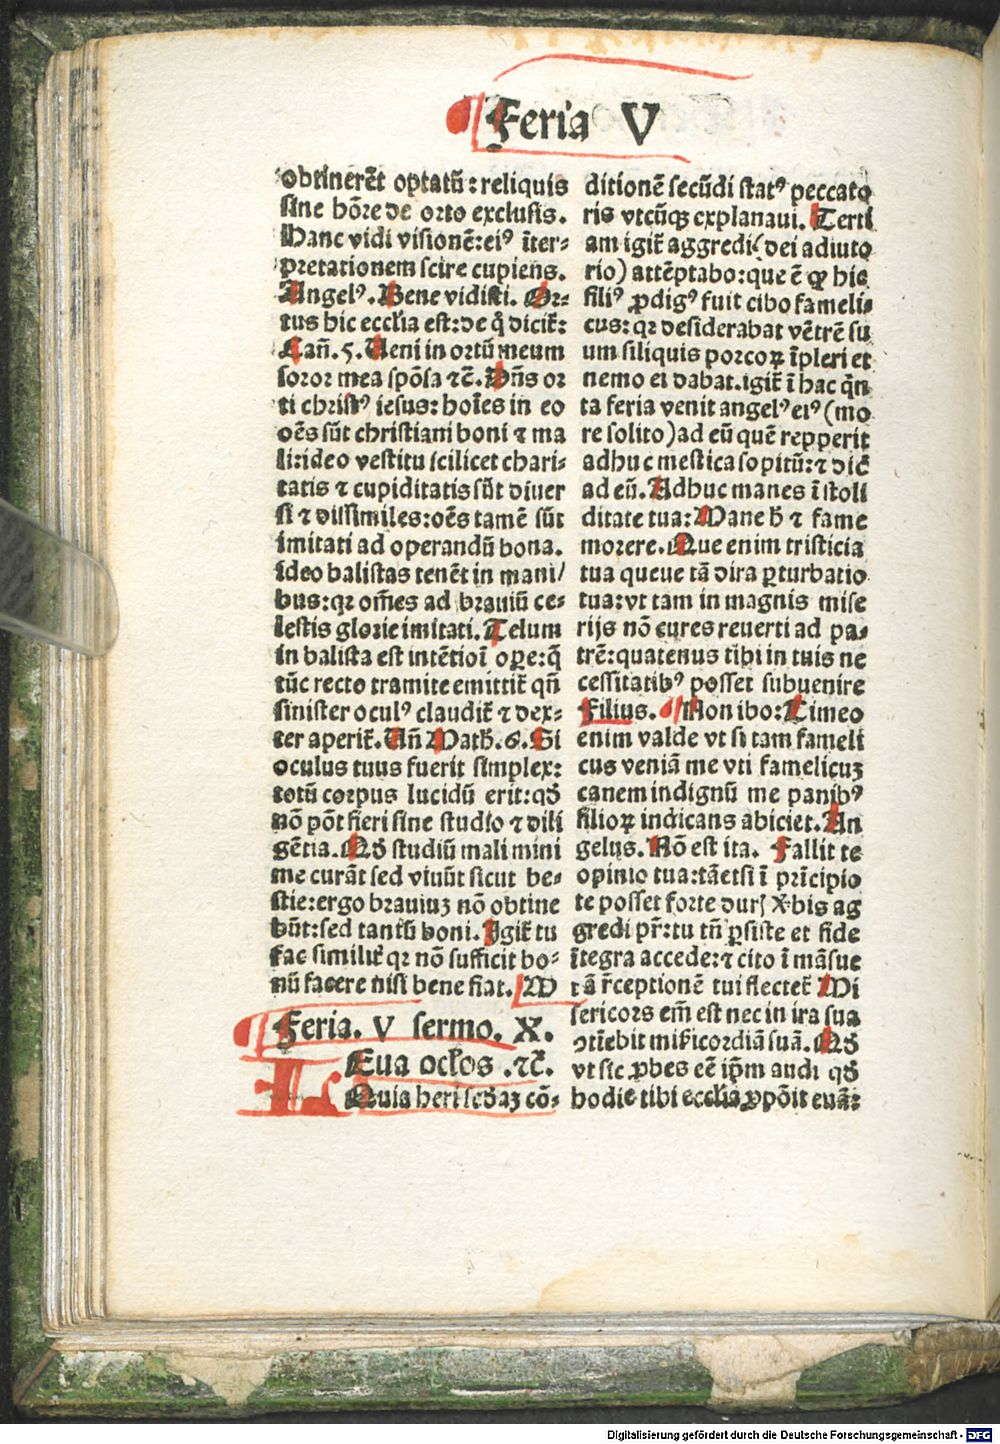 Feria V
obtinerēt optatū: reliquis
sine hōre de orto exclusis.
Hanc vidi visionē: eiꝰ īter-
pretationem scire cupiens.
Angelꝰ. Bene vidisti. Or-
tus hic ecclīa est: de q̄ dicit̄:
Can̄. 5. Ueni in ortū meum
soror mea spōsa ⁊c̄. Dn̄s or
ti christꝰ iesus: hoīes in eo
oēs sūt christiani boni ⁊ ma
li: ideo vestitu scilicet chari-
tatis ⁊ cupiditatis sūt diuer
si ⁊ dissimiles: oēs tamē sūt
imitati ad operandū bona.
ideo balistas tenēt in mani/
bus: qꝛ om̄es ad brauiū ce-
lestis glorie imitati. Telum
in balista est intētioī oꝑe: q̄
tūc recto tramite emittit̄ qn̄
sinister oculꝰ claudit̄ ⁊ dex-
ter aperit̄. Un̄ Math. 6. Si
oculus tuus fuerit simplex:
totū corpus lucidū erit: qđ
nō pōt fieri sine studio ⁊ dili
gētia. Mō studiū mali mini
me curāt sed viuūt sicut be-
stie: ergo brauiuꝫ nō obtine
būt: sed tantū boni. Igit̄ tu
fac similit̄ qꝛ nō sufficit bo-
nū facere nisi bene fiat.
Feria. V sermo. X.
LEua ocl̄os .⁊c̄.
Quia heri scđaꝫ cō-
ditionē secūdi statꝰ peccato
ris vtcūqꝫ explanaui. Terti
am igit̄ aggredi (dei adiuto
rio) attēptabo: que ē ꝙ hic
filiꝰ ꝓdigꝰ fuit cibo fameli-
cus: qꝛ desiderabat vētrē su
um siliquis porcoꝝ īpleri et
nemo ei dabat. igit̄ ī hac q̄n
ta feria venit angelꝰ eiꝰ (mo
re solito) ad eū quē repperit
adhuc mestica sopitū: ⁊ dic̄
ad eū. Adhuc manes ī stoli
ditate tua: Mane h̄ ⁊ fame
morere. Que enim tristicia
tua queue tā dira ꝑturbatio
tua: vt tam in magnis mise
rijs nō cures reuerti ad pa-
trē: quatenus tibi in tuis ne
cessitatibꝰ posset subuenire
Filius. Non ibo: Timeo
enim valde vt si tam fameli
cus veniā me vti famelicuꝫ
canem indignū me panibꝰ
filioꝝ indicans abiciet. An
gelus. Nō est ita. Fallit te
opinio tua: tāetsi ī prīcipio
te posset forte duris ꝟbis ag
gredi pr̄: tu tn̄ ꝑsiste et fide
ītegra accede: ⁊ cito ī māsue
tā r̄ceptionē tui flectet̄ Mi
sericors em̄ est nec in ira sua
ↄtiēbit miẜicordiā suā. Mō
vt sic ꝓbes eē ip̄m audi qđ
hodie tibi ecclīa ꝓpōit euā-
Digitalisierung gefördert durch die Deutsche Forschungsgemeinschaft - DFG